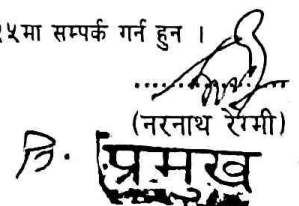 ५मा सम्पर्क गर्न हुन ।
(नरनाथ रेग्मी)
नि. प्रमुख